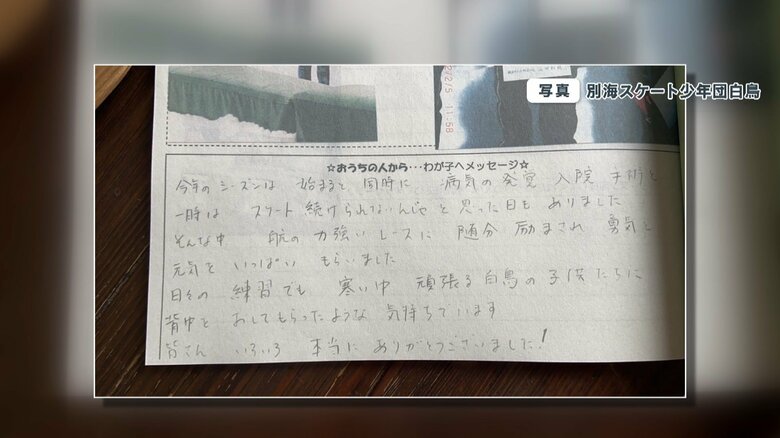 写真 別海スケート少年団白鳥
☆おうちの人から…わが子へメッセージ☆
今年のシーズンは 始まると 同時に 病気の発覚 入院 手術と
一時は スケート 続けられないんじゃと思った日もありました
そんな中 航の力強いレースに 随分 励まされ 勇気と
元気を いっぱい もらいました
日々の 練習でも 寒い中 頑張る白鳥の子供たちに
背中を おしてもらったような 気持ちでいます
皆さん いろいろ 本当に ありがとうございました!